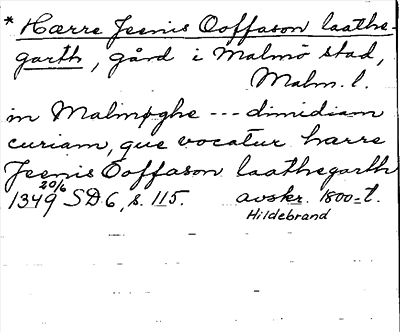 * Hærre Jeenis Ooffason laathe-
garth, gård i Malmö stad,
Malm. l.
in Malmøghe --- dimidiam
curiam, que vocatur hærre
Jeenis Ooffason laathegarth
20/6
1349 SD 6, s. 115. avskr. 1800-t.
Hildebrand